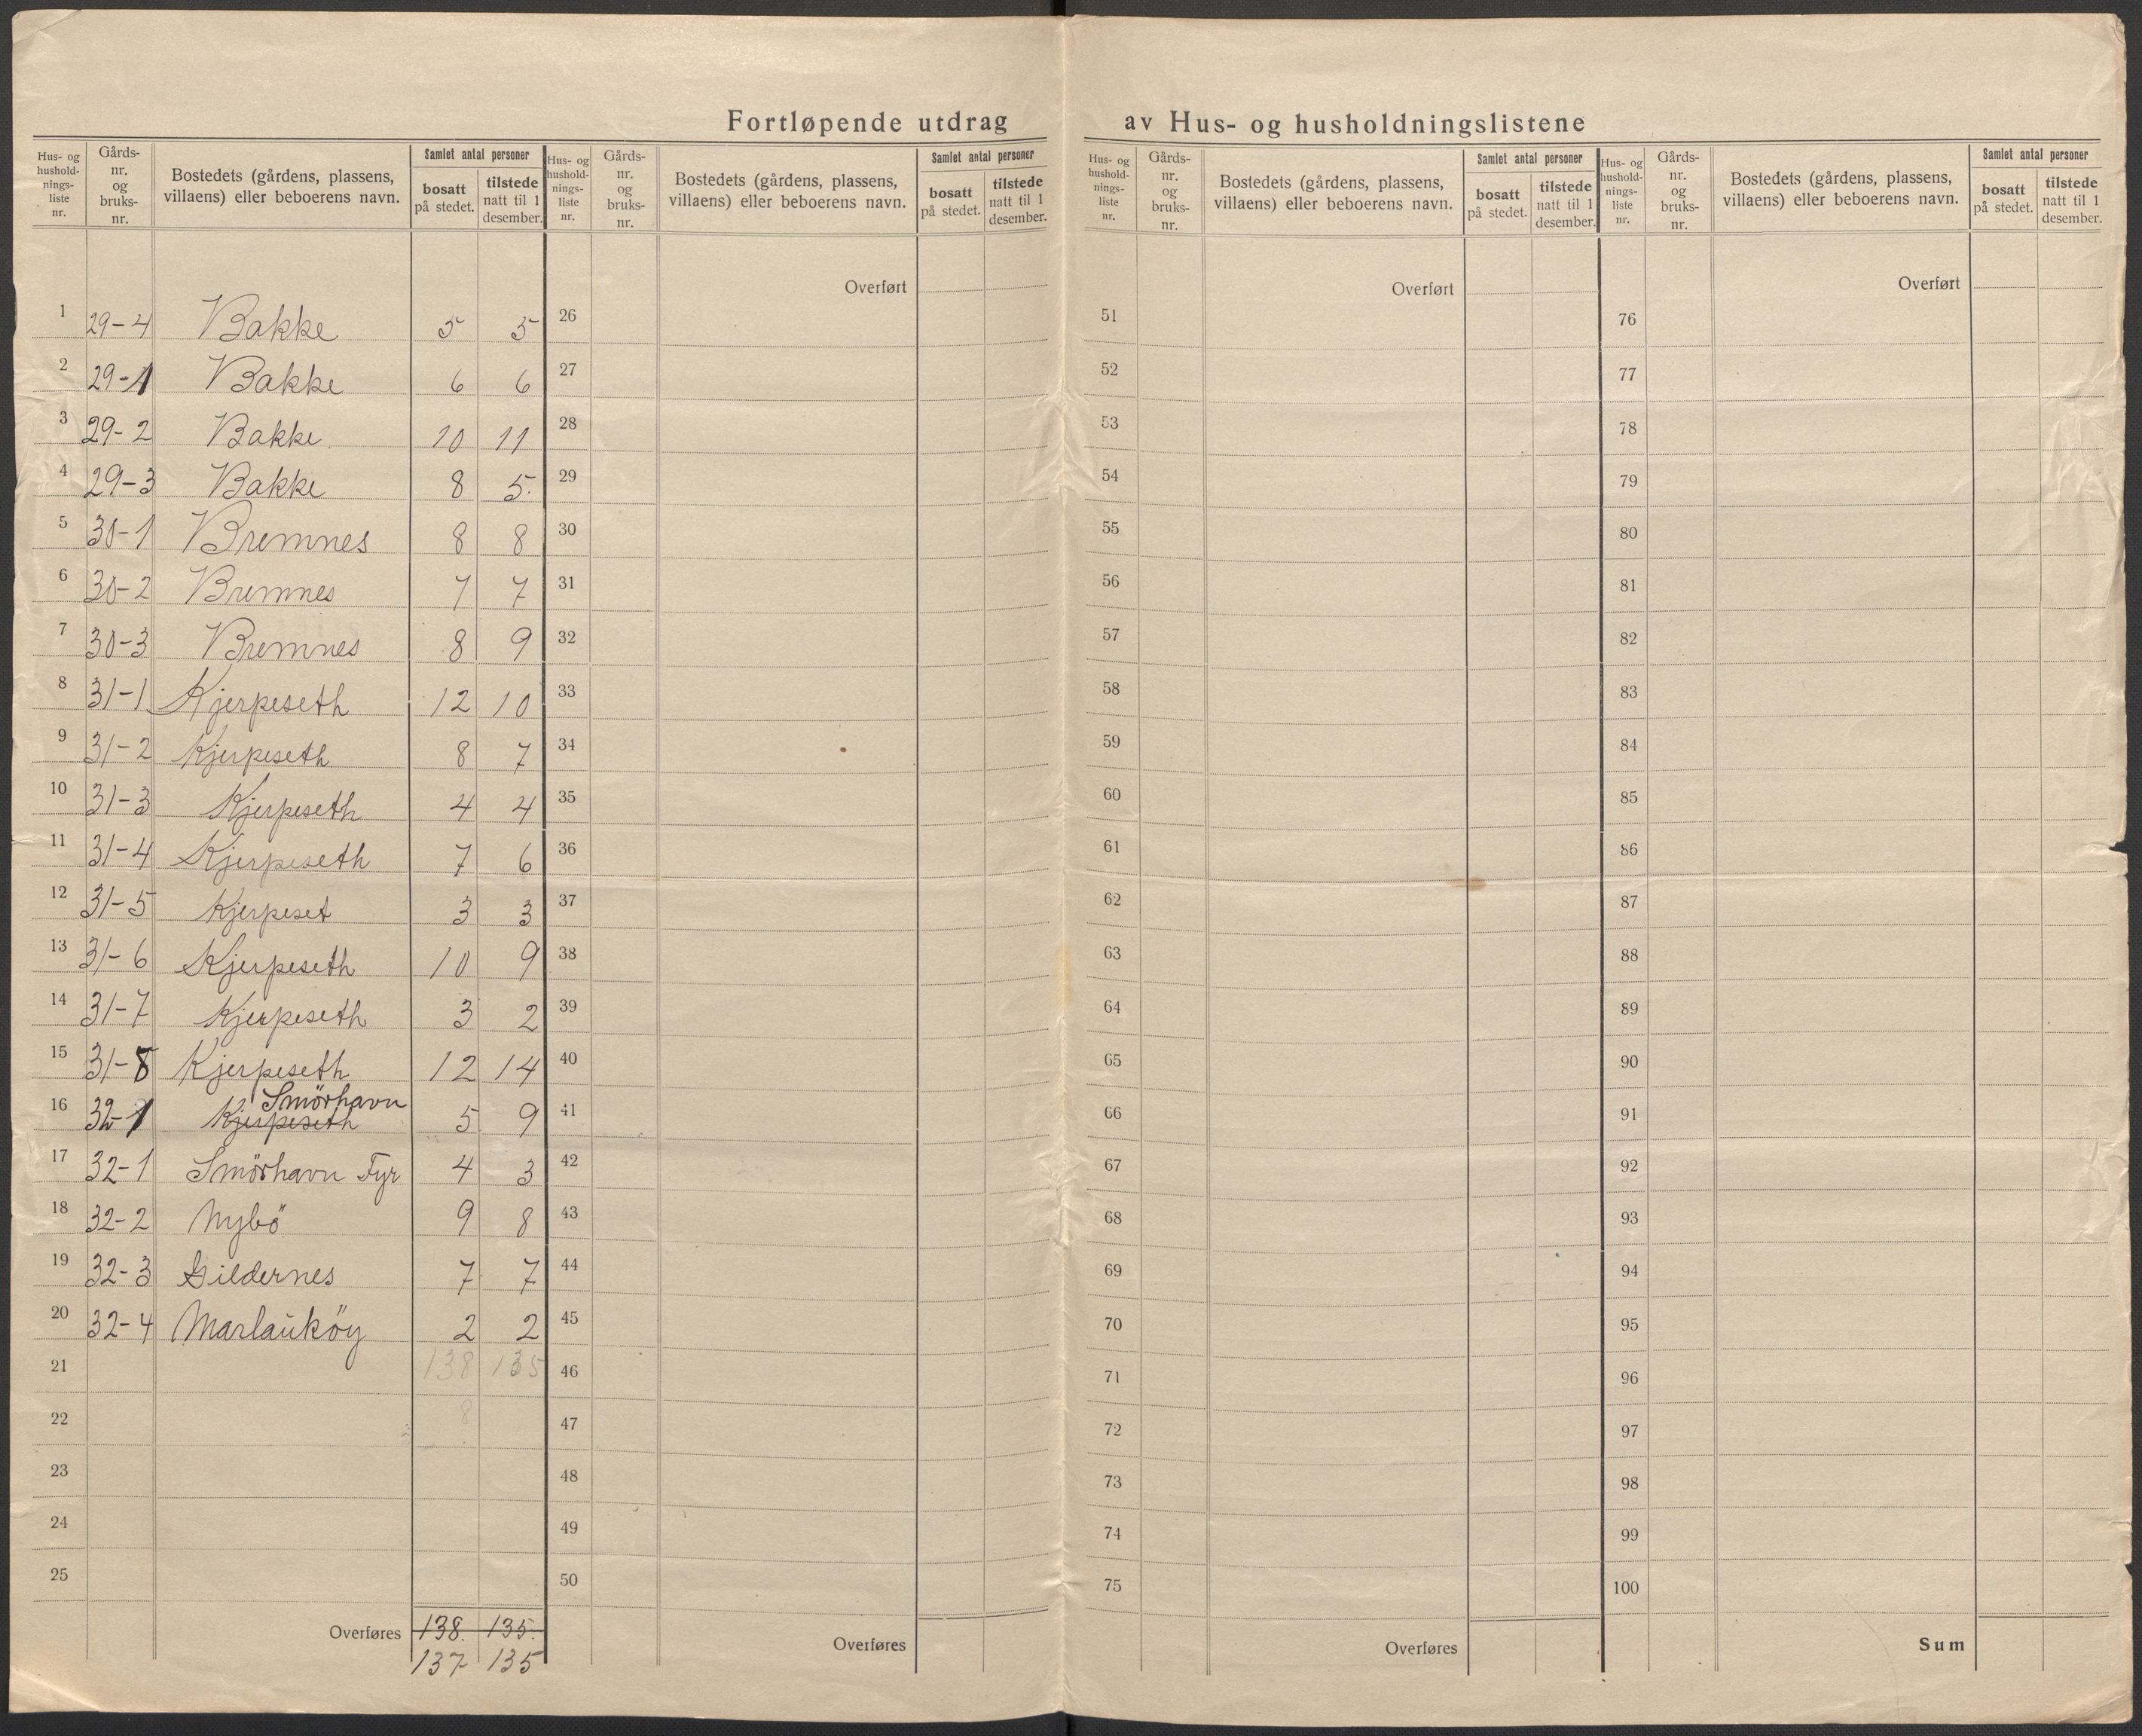 Fortløpende utdrag av Hus- og husholdningslistene
Hus- og hushold-nings-liste nr. Gårds-nr. og bruks-nr. Bostedets (gårdens, plassens, villaens) eller beboerens navn. Samlet antal personer bosatt på stedet. tilstede natt til 1 desember.
1 29-4 Bakke 5 5
2 29-1 Bakke 6 6
3 29-2 Bakke 10 11
4 29-3 Bakke 8 5.
5 30-1 Bremnes 8 8
6 30-2 Bremnes 7 7
7 30-3 Bremnes 8 9
8 31-1 Kjerpeseth 12 10
9 31-2 Kjerpeseth 8 7
10 31-3 Kjerpeseth 4 4
11 31-4 Kjerpeseth 7 6
12 31-5 Kjerpeset 3 3
13 31-6 Kjerpeseth 10 9
14 31-7 Kjerpeseth 3 2
15 31-8 Kjerpeseth 12 14
Smörhavn
16 32-1 Kjerpeseth 5 9
17 32-1 Smörhavn Fyr 4 3
18 32-2 Nybö 9 8
19 32-3 Gildernes 7 7
20 32-4 Marlauköy 2 2
21 138 135
22 8
23
24
25
Overføres 138. 135.
137 135
Hus- og hushold-nings-liste nr. Gårds-nr. og bruks-nr. Bostedets (gårdens, plassens, villaens) eller beboerens navn. Samlet antal personer bosatt på stedet. tilstede natt til 1 desember.
Overført
26
27
28
29
30
31
32
33
34
35
36
37
38
39
40
41
42
43
44
45
46
47
48
49
50
Overføres
Hus- og hushold-nings-liste nr. Gårds-nr. og bruks-nr. Bostedets (gårdens, plassens, villaens) eller beboerens navn. Samlet antal personer bosatt på stedet. tilstede natt til 1 desember.
Overført
51
52
53
54
55
56
57
58
59
60
61
62
63
64
65
66
67
68
69
70
71
72
73
74
75
Overføres
Hus- og hushold-nings-liste nr. Gårds-nr. og bruks-nr. Bostedets (gårdens, plassens, villaens) eller beboerens navn. Samlet antal personer bosatt på stedet. tilstede natt til 1 desember.
Overført
76
77
78
79
80
81
82
83
84
85
86
87
88
89
90
91
92
93
94
95
96
97
98
99
100
Sum